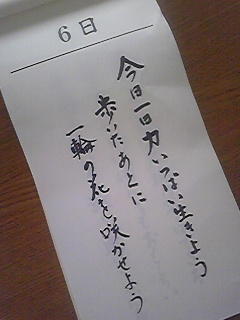 6日
今日一日力いっぱい生きよう
歩いたあとに
一輪の花を咲かせよう